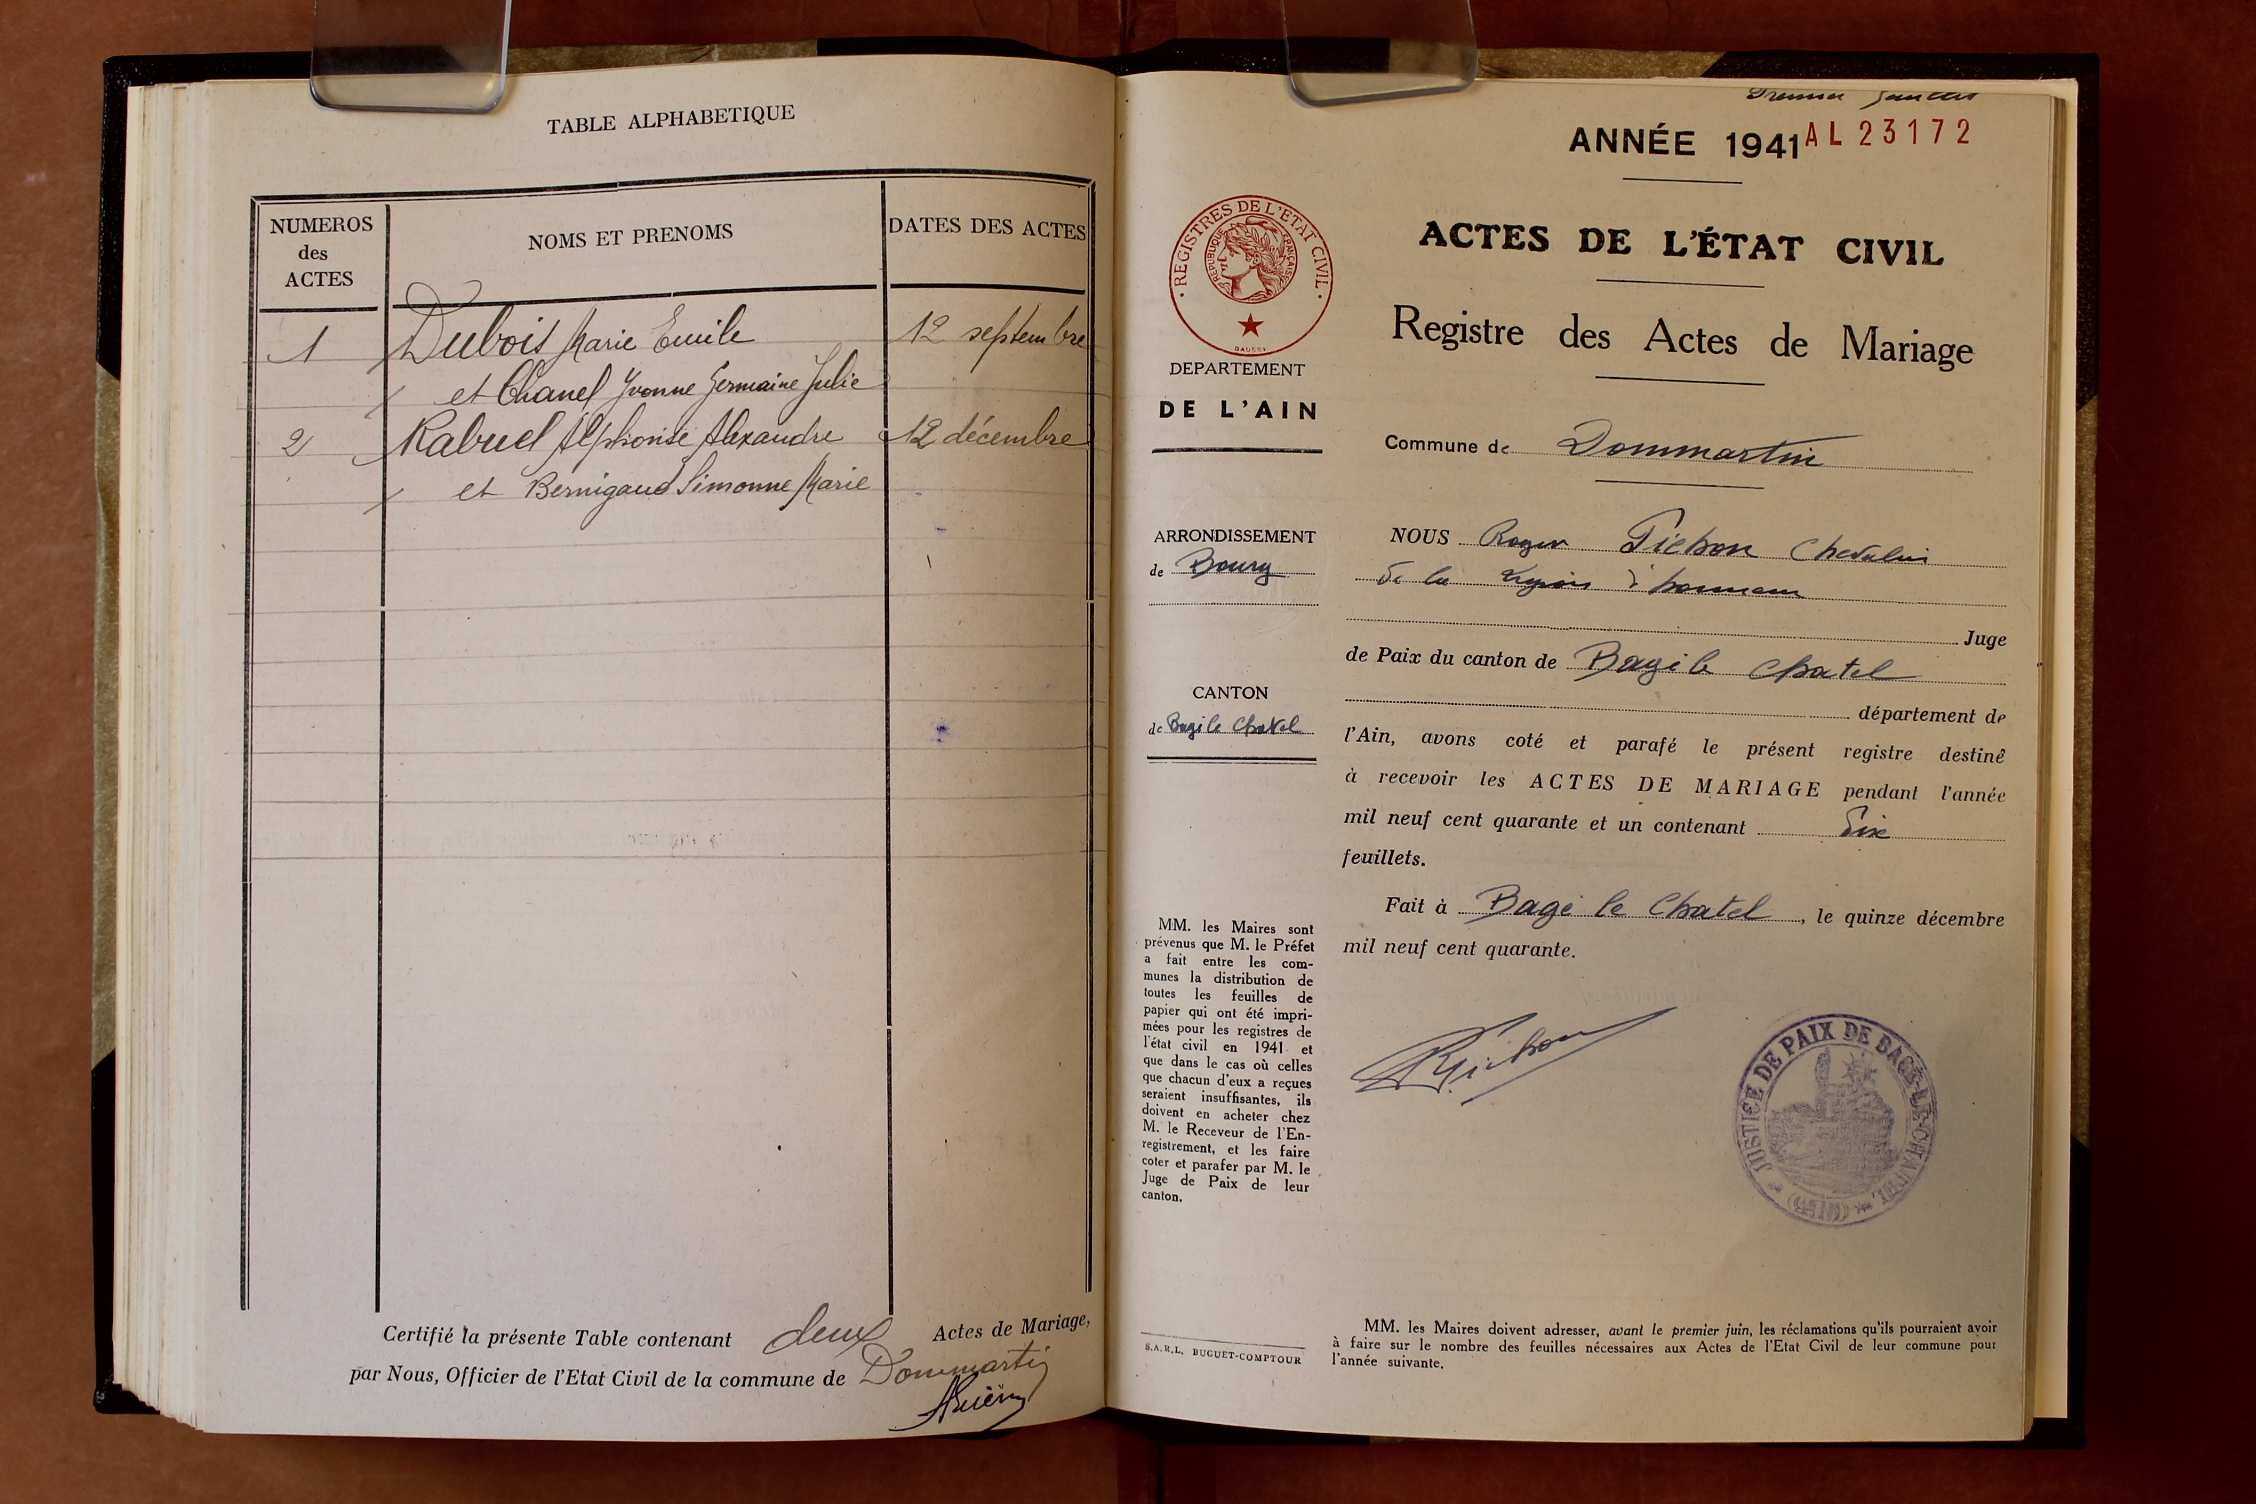 TABLE ALPHABETIQUE
NUMEROS des ACTES
NOMS ET PRENOMS
DATES DES ACTES
1 Dubois Marie Emile 12 septembre
et Chanel Yvonne Germaine Julie
2 Rabuel Alphonse Alexandre 12 décembre
et Bernigaud Simonne Marie
Certifié la présente Table contenant deux Actes de Mariage,
par Nous, Officier de l'Etat Civil de la commune de Dommartin
Premier feuillet
ANNÉE 1941 AL 23172
ACTES DE L'ÉTAT CIVIL
Registre des Actes de Mariage
REGISTRES DE L'ETAT CIVIL
REPUBLIQUE FRANÇAISE
DEPARTEMENT
DE L'AIN
Commune de Dommartin
ARRONDISSEMENT
de Bourg
CANTON
de Bagé le Chatel
NOUS Roger Pichon Chevalier
de la Légion d'honneur
Juge
de Paix du canton de Bagé le Chatel
département de
l'Ain, avons coté et parafé le présent registre destiné
à recevoir les ACTES DE MARIAGE pendant l'année
mil neuf cent quarante et un contenant Six
feuillets.
Fait à Bagé le Chatel, le quinze décembre
mil neuf cent quarante.
RPichon
JUSTICE DE PAIX DE BAGÉ-LE-CHATEL
(AIN)
MM. les Maires sont
prévenus que M. le Préfet
a fait entre les com-
munes la distribution de
toutes les feuilles de
papier qui ont été impri-
mées pour les registres de
l'état civil en 1941 et
que dans le cas où celles
que chacun d'eux a reçues
seraient insuffisantes, ils
doivent en acheter chez
M. le Receveur de l'En-
registrement, et les faire
coter et parafer par M. le
Juge de Paix de leur
canton.
S.A.R.L. BUGUET-COMPTOUR
MM. les Maires doivent adresser, avant le premier juin, les réclamations qu'ils pourraient avoir
à faire sur le nombre des feuilles nécessaires aux Actes de l'Etat Civil de leur commune pour
l'année suivante.